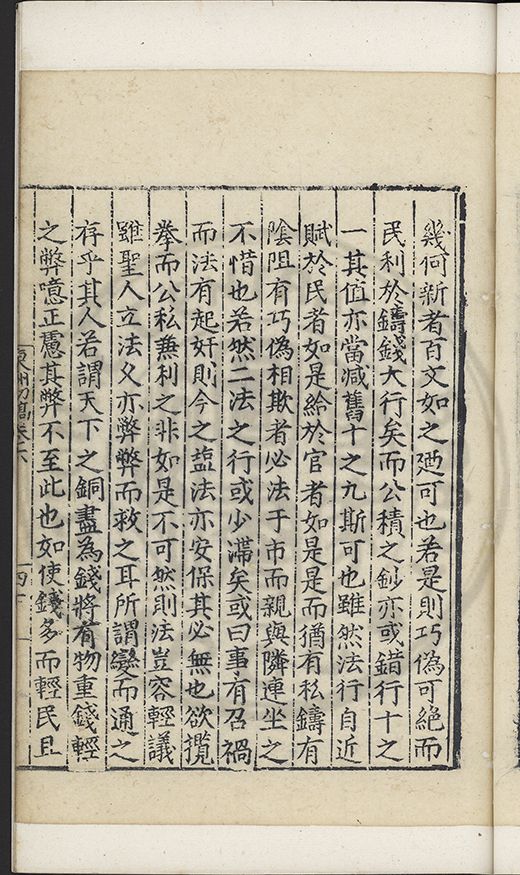 幾何新者百文如之廼可也若是則巧偽可絕而
民利於鑄錢大行矣而公積之鈔亦或錯行十之
一其值亦當減舊十之九斯可也雖然法行自近
賦於民者如是給於官者如是是而猶有私鑄有
陰阻有巧偽相欺者必法于市而親與隣連坐之
不惜也若然二法之行或少滯矣或曰事有召禍
而法有起奸則今之盐法亦安保其必無也欲攬
拳而公私兼利之非如是不可然則法豈容輕議
雖聖人立法久亦弊弊而救之耳所謂變而通之
存乎其人若謂天下之銅盡為錢將有物重錢輕
之弊噫正慮其弊不至此也如使錢多而輕民且